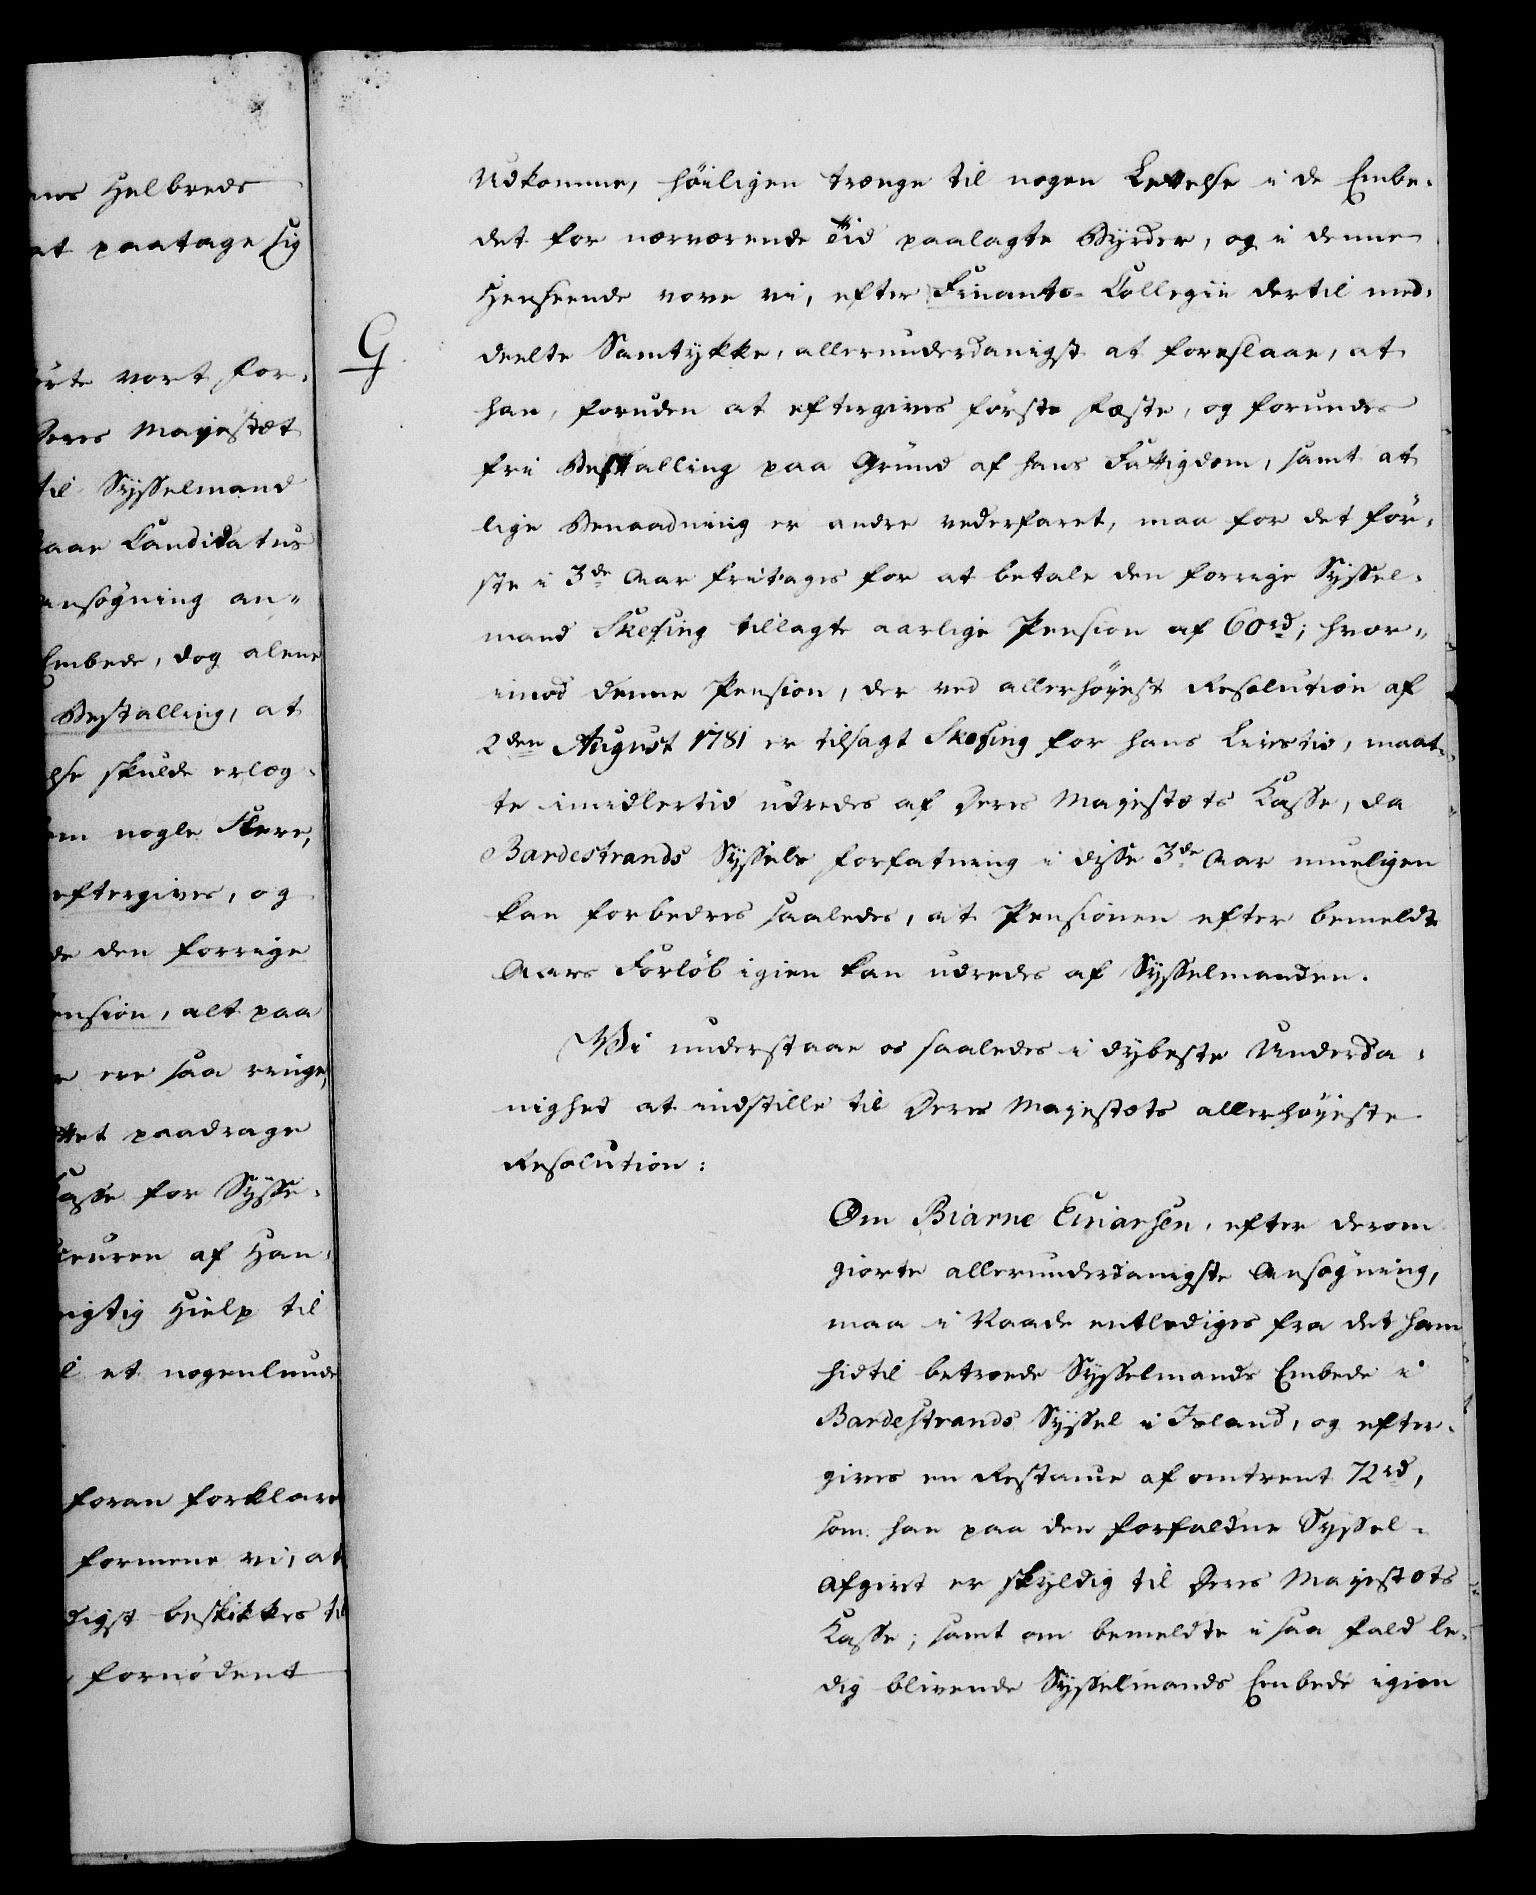 ens Helbreds
at paatage sig
örte vort for-
Deres Majestæt
til Sysselmand
Candidatus
ansögning an-
Embede, dog alene
Bestalling, at
skulde erlæg-
nogle flere,
eftergives, og
den forrige
ension, alt paa
ere saa ringe,
paadrage
Casse for Sysse-
af Han-
rigtig Hielp til
et nogenlunde
foran forklare
formene vi, at
digst beskikkes til
fornödent
Udkomme, höiligen trænge til nogen Lettelse i de Embe-
det for nærværende Tiid paalagte Byrder, og i denne
Henseende vove vi, efter Finants-Collegii dertil med-
G
deelte Samtykke, allerunderdanigst at foreslaae, at
han, foruden at eftergives förste Fæste, og forundes
fri Bestalling paa Grund af hans Fattigdom, samt at
lige Benaadning er andre vederfaret, maa for det för-
ste i 3de Aar fritages for at betale den forrige Syssel-
mand Skefing tillagte aarlige Pension af 60rd; hvor-
imod denne Pension, der ved allerhöyest Resolution af
2den August 1781 er tilsagt Skefing for hans Livstid, maat-
te imidlertid udredes af Deres Majestæts Casse, da
Bardestrands Syssels forfatning i disse 3de Aar mueligen
kan forbedres saaledes, at Pensionen efter bemeldte
Aars Forlöb igien kan udredes af Sysselmanden.
Vi understaae os saaledes i dybeste Underda-
nighed at indstille til Deres Majestæts allerhöyeste
Resolution:
Om Biarne Einarsen, efter derom
giorte allerunderdanigste Ansögning,
maa i Naade entlediges fra det ham
hidtil betroede Sysselmands Embede i
Bardestrands Syssel i Island, og efter-
gives en Restance af omtrent 72rd,
som han paa den forfaldne Syssel-
Afgivt er skyldig til Deres Majestæts
Casse; samt om bemeldte i saa fald le-
dig blivende Sysselmands Embede igien